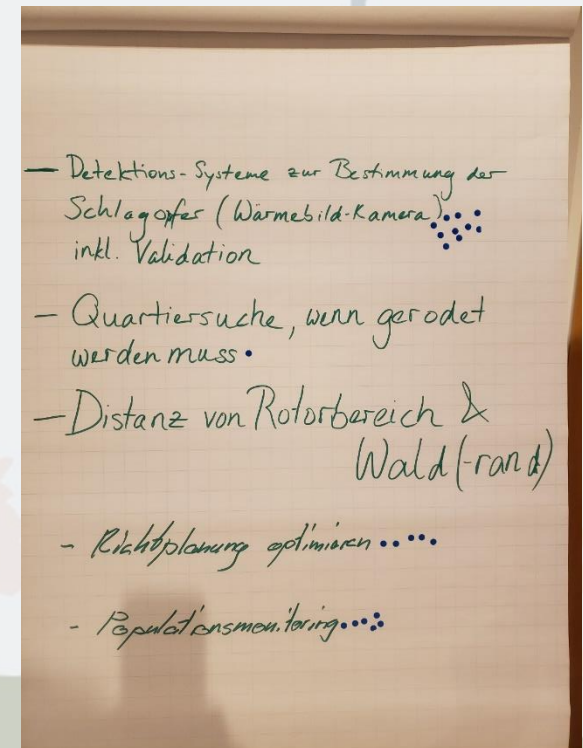 — Detektions-Systeme zur Bestimmung der
Schlagopfer (Wärmebild-Kamera)
inkl. Validation
— Quartiersuche, wenn gerodet
werden muss
— Distanz von Rotorbereich &
Wald(-rand)
- Richtplanung optimieren
- Populationsmonitoring